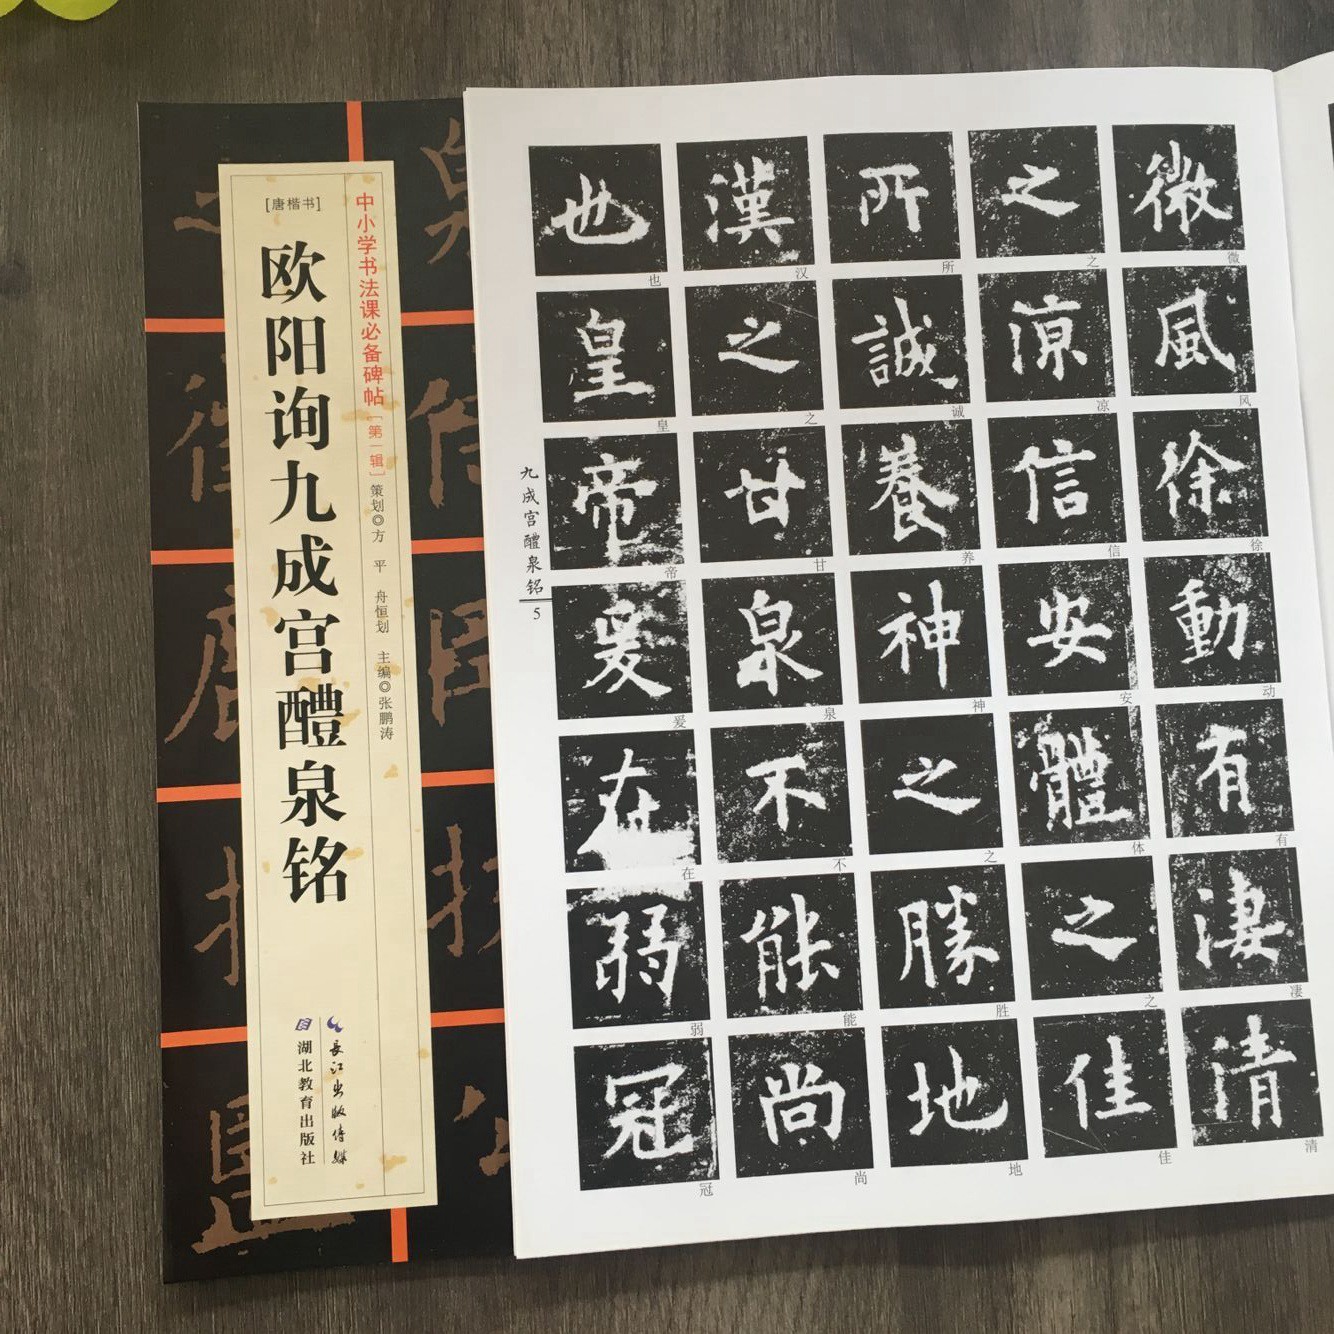 [唐楷书]
中小学书法课必备碑帖[第一辑]
策划◎方 平 舟恒划 主编◎张鹏涛
欧阳询九成宫醴泉铭
長江出版傳媒
湖北教育出版社
微風徐動有淒清
微风徐动有凄清
之凉信安體之佳
之凉信安体之佳
所誠養神之勝地
所诚养神之胜地
漢之甘泉不能尚
汉之甘泉不能尚
也皇帝爰在弱冠
也皇帝爰在弱冠
九成宫醴泉铭
5